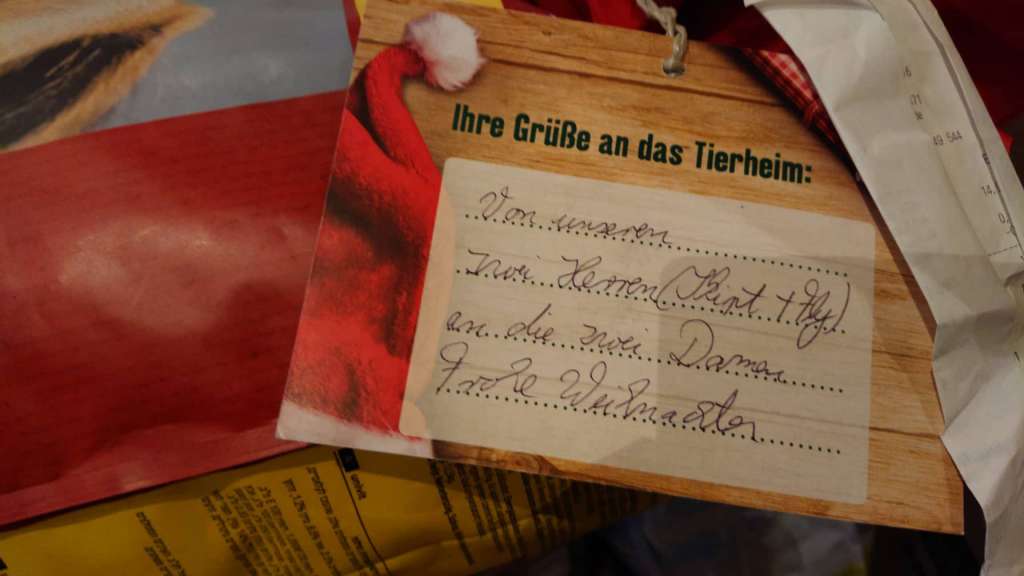 Ihre Grüße an das Tierheim:
Von unseren
zwei Herren
an die zwei Damen
Frohe Weihnachten
49 544
14,
0,